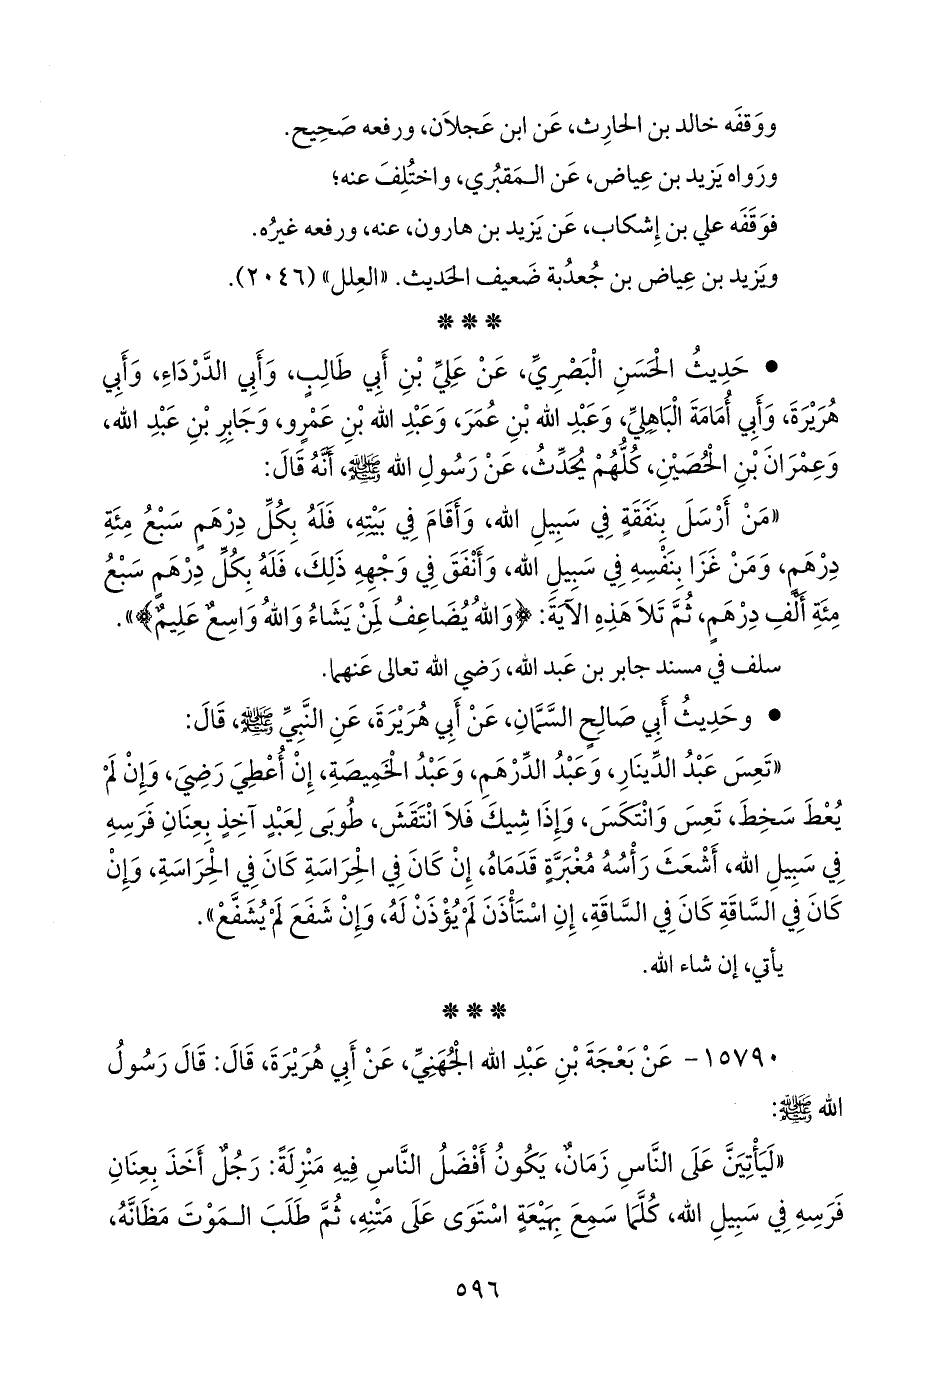 ووَقفَه خالد بن الحارِث، عَن ابن عَجلاَن، ورفعه صَحِيح.
ورَواه يَزيد بن عِياض، عَن المَقبُري، واختُلِفَ عنه؛
فوَقَفَه علي بن إِشكاب، عَن يَزيد بن هارون، عنه، ورفعه غيرُه.
ويَزيد بن عِياض بن جُعدُبة ضَعيف الحَديث. «العِلل» (٢٠٤٦).
***
• حَدِيثُ الْحَسَنِ الْبَصْرِيِّ، عَنْ عَلِيِّ بْنِ أَبِي طَالِبٍ، وَأَبِي الدَّرْدَاءِ، وَأَبِي
هُرَيْرَةَ، وَأَبِي أُمَامَةَ الْبَاهِلِيِّ، وَعَبْدِ الله بْنِ عُمَرَ، وَعَبْدِ الله بْنِ عَمْرٍو، وَجَابِرِ بْنِ عَبْدِ الله،
وَعِمْرَانَ بْنِ الْحُصَيْنِ، كُلُّهُمْ يُحَدِّثُ، عَنْ رَسُولِ الله ﷺ، أَنَّهُ قَالَ:
«مَنْ أَرْسَلَ بِنَفَقَةٍ فِي سَبِيلِ الله، وَأَقَامَ فِي بَيْتِهِ، فَلَهُ بِكُلِّ دِرْهَمٍ سَبْعُ مِئَةِ
دِرْهَمٍ، وَمَنْ غَزَا بِنَفْسِهِ فِي سَبِيلِ الله، وَأَنْفَقَ فِي وَجْهِهِ ذَلِكَ، فَلَهُ بِكُلِّ دِرْهَمٍ سَبْعُ
مِئَةِ أَلْفِ دِرْهَمٍ، ثُمَّ تَلاَ هَذِهِ الآيَةَ: ﴿وَاللهُ يُضَاعِفُ لِمَنْ يَشَاءُ وَاللهُ وَاسِعٌ عَلِيمٌ﴾».
سلف في مسند جابر بن عَبد الله، رَضي الله تعالى عَنهما.
• وحَدِيثُ أَبِي صَالِحٍ السَّمَّانِ، عَنْ أَبِي هُرَيْرَةَ، عَنِ النَّبِيِّ ﷺ، قَالَ:
«تَعِسَ عَبْدُ الدِّينَارِ، وَعَبْدُ الدِّرْهَمِ، وَعَبْدُ الْخَمِيصَةِ، إِنْ أُعْطِيَ رَضِيَ، وَإِنْ لَمْ
يُعْطَ سَخِطَ، تَعِسَ وَانْتَكَسَ، وَإِذَا شِيكَ فَلاَ انْتَقَشَ، طُوبَى لِعَبْدٍ آخِذٍ بِعِنَانِ فَرَسِهِ
فِي سَبِيلِ الله، أَشْعَثَ رَأْسُهُ مُغْبَرَّةٍ قَدَمَاهُ، إِنْ كَانَ فِي الْحِرَاسَةِ كَانَ فِي الْحِرَاسَةِ، وَإِنْ
كَانَ فِي السَّاقَةِ كَانَ فِي السَّاقَةِ، إِنِ اسْتَأْذَنَ لَمْ يُؤْذَنْ لَهُ، وَإِنْ شَفَعَ لَمْ يُشَفَّعْ».
يأتي، إن شاء الله.
***
١٥٧٩٠- عَنْ بَعْجَةَ بْنِ عَبْدِ الله الْجُهَنِيِّ، عَنْ أَبِي هُرَيْرَةَ، قَالَ: قَالَ رَسُولُ
الله ﷺ:
«لَيَأْتِيَنَّ عَلَى النَّاسِ زَمَانٌ، يَكُونُ أَفْضَلُ النَّاسِ فِيهِ مَنْزِلَةً: رَجُلٌ أَخَذَ بِعِنَانِ
فَرَسِهِ فِي سَبِيلِ الله، كُلَّمَا سَمِعَ بِهَيْعَةٍ اسْتَوَى عَلَى مَتْنِهِ، ثُمَّ طَلَبَ الْمَوْتَ مَظَانَّهُ،
٥٩٦